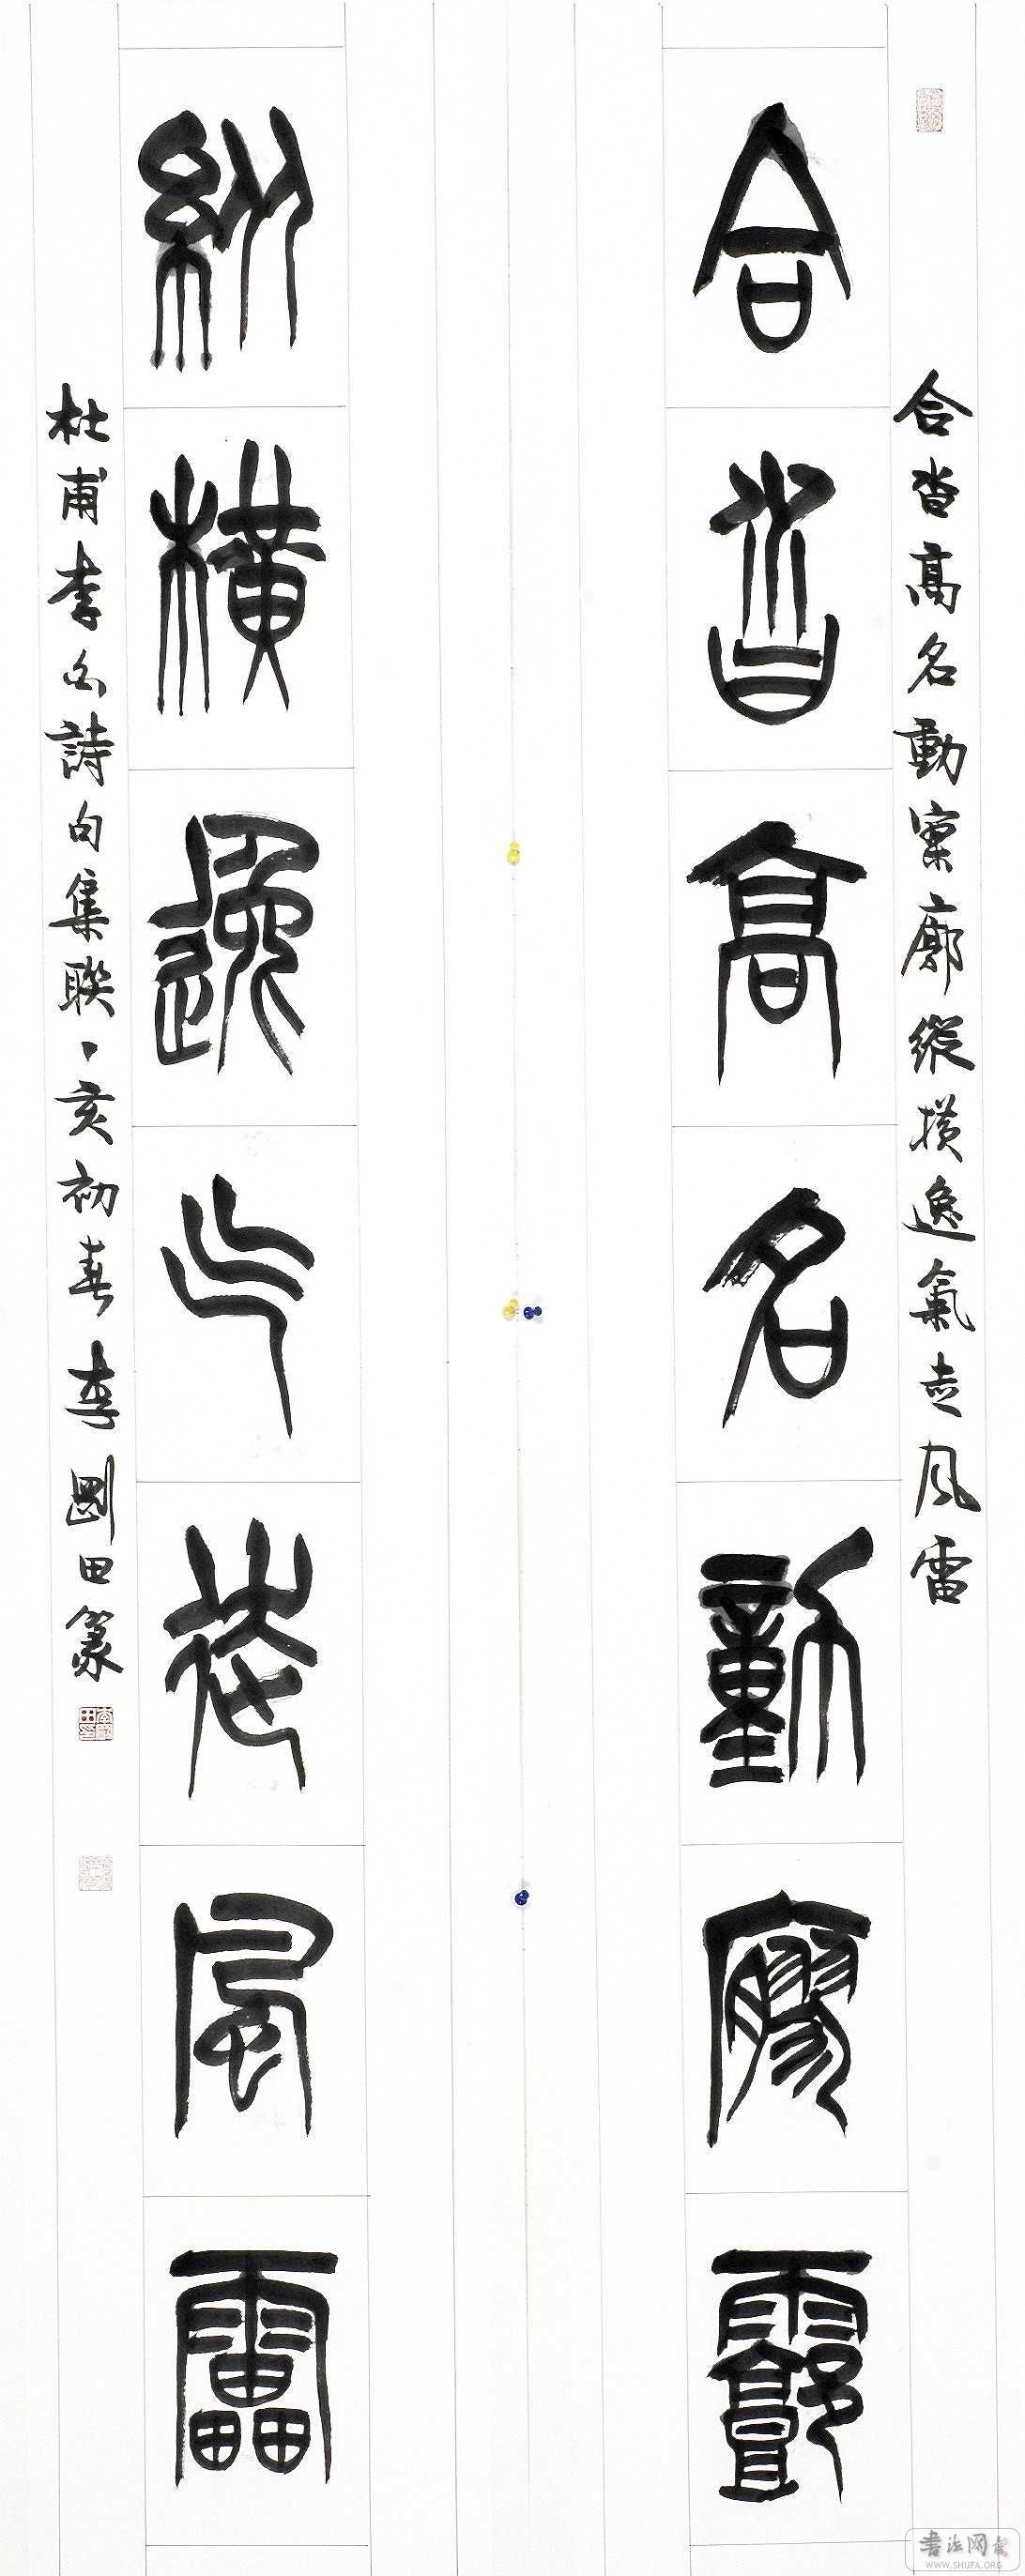 合沓高名動寥廓縱横逸氣走风雷
合沓高名動廖霩
縱橫逸气走風靁
杜甫李白詩句集聯丁亥初春李剛田篆
书法网
WWW.SHUFA.ORG